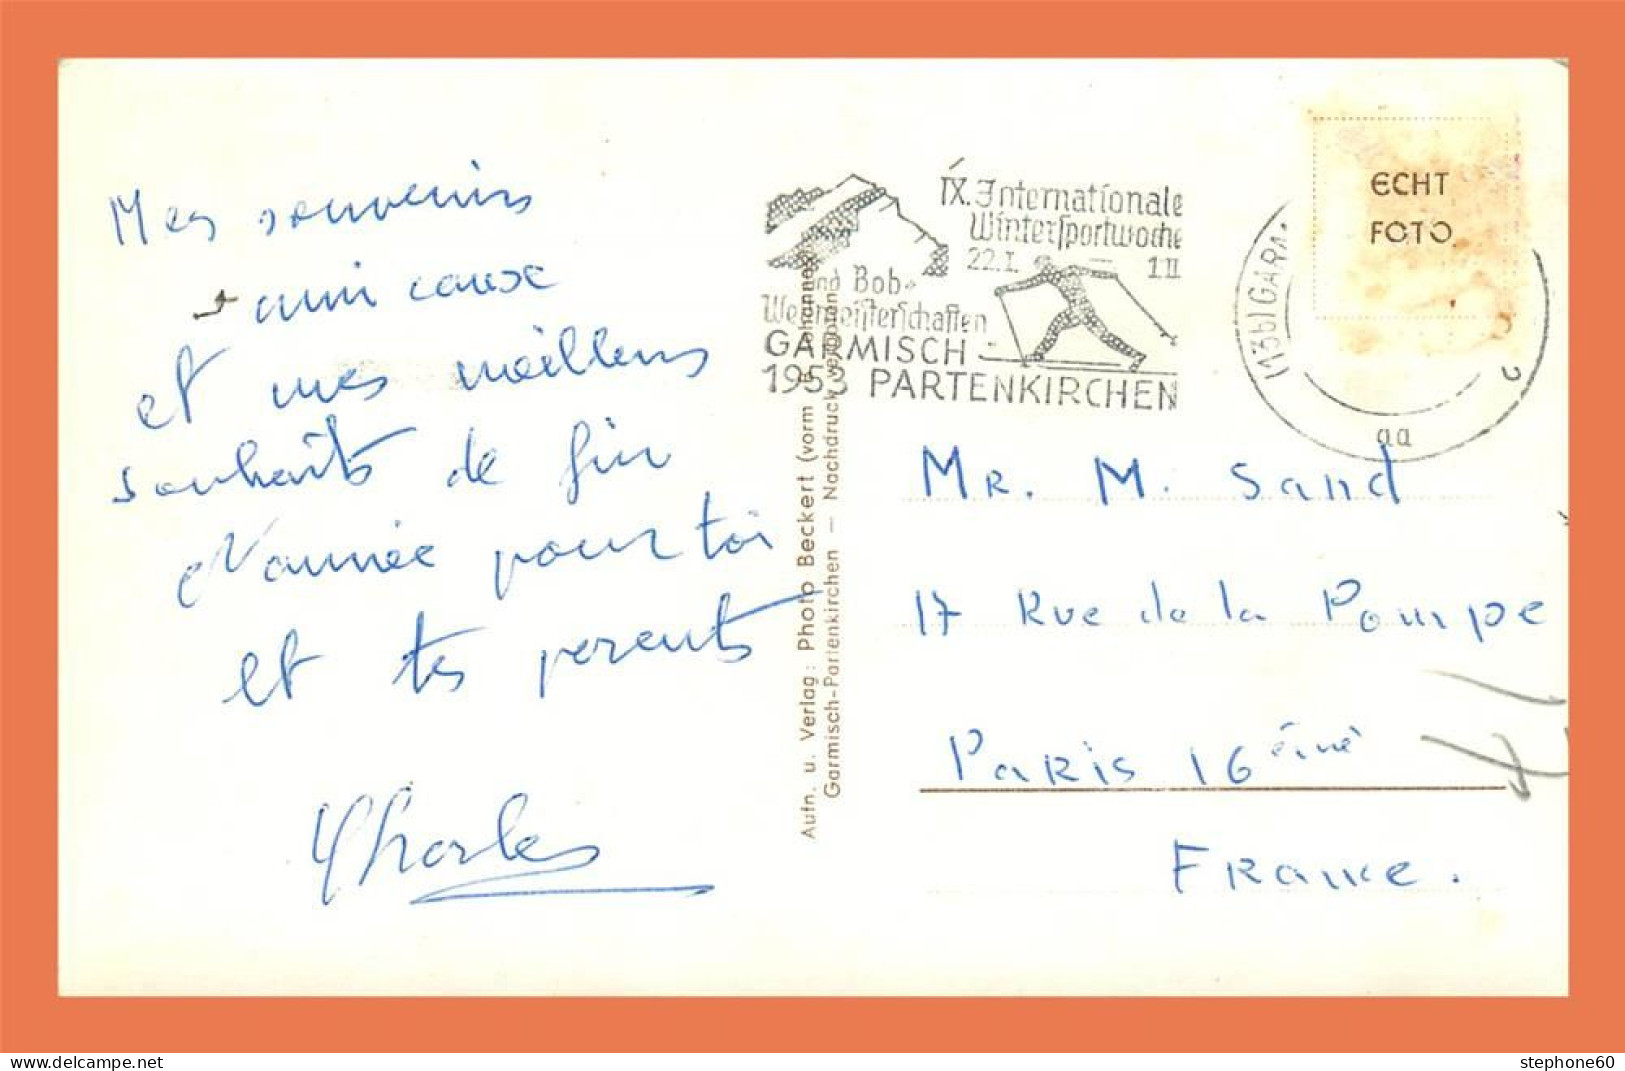 Mes souvenirs
amicaux
et mes meilleurs
souhaits de fin
d'année pour toi
et tes parents
Charles
IX. Internationale
Wintersportwoche
22.I. — 1.II
und Bob-
Weltmeisterschaften
GARMISCH
1953 PARTENKIRCHEN
(13b) GARM
aa
2
ECHT
FOTO
Aufn. u. Verlag: Photo Beckert (vorm
Garmisch-Partenkirchen — Nachdruck verboten
MR. M. Sand
17 Rue de la Pompe
PARIS 16ème
FRANCE.
stephone60